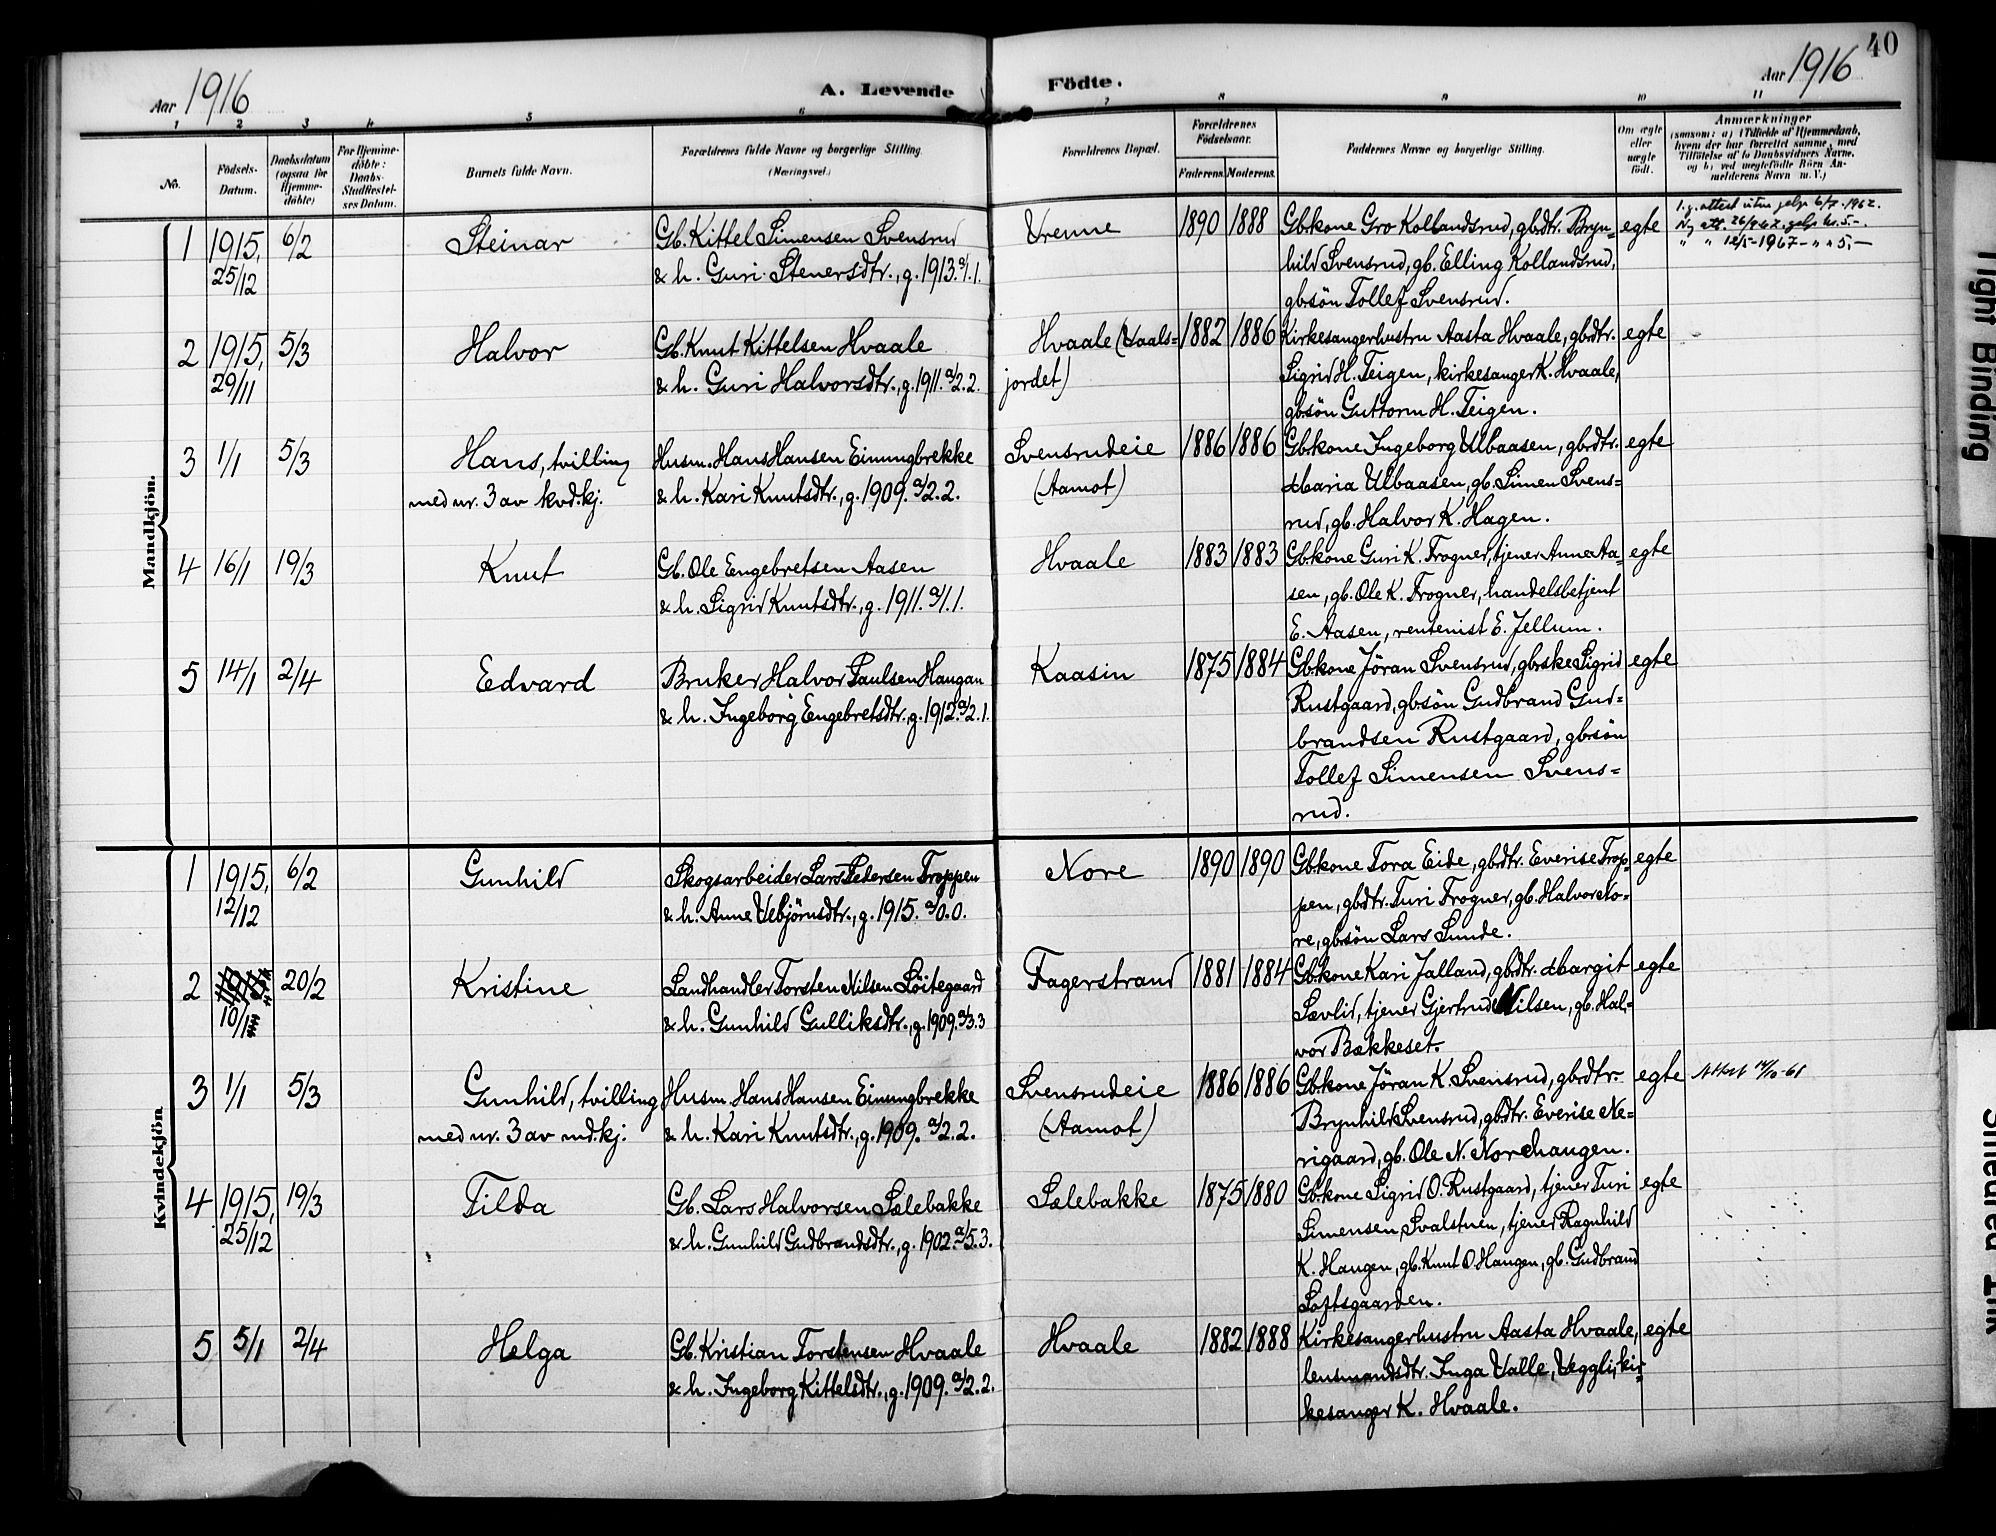 40
Aar 1916
A. Levende Födte.
Aar 1916
1 2 3 4 5 6 7 8 9 10 11
No.
Födsels-
Datum.
Daabsdatum
(ogsaa for
Hjemme-
döbte)
For Hjemme-
döbte:
Daabs-
Stadfæstel-
ses Datum.
Barnets fulde Navn.
Forældrenes fulde Navne og borgerlige Stilling
(Næringsvei.)
Forældrenes Bopæl.
Forældrenes
Födselsaar.
Faderens. Moderens.
Faddernes Navne og borgerlige Stilling.
Om ægte
eller
uægte
födt.
Anmærkninger
(saasom: a) i Tilfælde af Hjemmedaab,
hvem der har forrettet samme, med
Tilföielse af to Daabsvidners Navne,
og b) ved uægtefödte Börn An-
melderens Navn m. V.)
Mandkjön.
1 1915, 6/2 Steinar Gb. Kittel Simensen Svensrud Vrenne 1890 1888 Gbkone Gro Kollandsrud, gbdtr. Bryn= egte
25/12 & h. Guri Stenersdtr., g. 1913. a/1.1. hild Svensrud, gb. Elling Kollandsrud,
gbsön Tollef Svensrud.
l.g. attest uten gebyr 6/7-1962.
Ny att. 26/9 67. gebyr kr. 5.-
" " 12/5-1967 - " " 5,-
2 1915, 5/3 Halvor Gb. Knut Kittelsen Hvaale Hvaale (Vaals= 1882 1886 Kirkesangerhustru Aasta Hvaale, gbdtr. egte
29/11 & h. Guri Halvorsdtr., g. 1911. a/2.2. jordet) Sigrid H. Teigen, kirkesanger K. Hvaale,
gbsön Guttorm H. Teigen.
3 1/1 5/3 Hans, tvilling Husm. Hans Hansen Einungbrekke Svensrudeie 1886 1886 Gbkone Ingeborg Ulbaasen, gbrdtr. egte
med nr. 3 av kvd.kj. & h. Kari Knutsdtr., g. 1909. a/2.2. (Aamot) Maria Ulbaasen, gb. Simen Svens=
rud, gb. Halvor K. Hagen.
4 16/1 19/3 Knut Gb. Ole Engebretsen Aasen Hvaale 1883 1883 Gbkone Guri K. Frogner, tjener Anne Aa= egte
& h. Sigrid Knutsdtr., g. 1911. a/1.1. sen, gb. Ole K. Frogner, handelsbetjent
E. Aasen, rentenist E. Jellum.
5 14/1 2/4 Edvard Bruker Halvor Paulsen Haugan Kaasin 1875 1884 Gbkone Jöran Svensrud, gbrske Sigrid egte
& h. Ingeborg Engebretsdtr. g. 1912. a/2.1. Rustgaard, gbsön Gudbrand Gud=
brandsen Rustgaard, gbrsön
Tollef Simensen Svens=
rud.
Kvindekjön
1 1915, 6/2 Gunhild Skogsarbeider Lars Petersen Troppen Nore 1890 1890 Gbkone Tora Eide, gbrdtr. Everise Trop= egte
12/12 & h. Anne Vebjörnsdtr., g. 1915. a/0.0. pen, gbdtr. Turi Frogner, gb. Halvor No=
re, gbsön Lars Sunde.
2 20/2 Kristine Landhandler Torsten Nilsen Löitegaard Fagerstrand 1881 1884 Gbkone Kari Jalland, gbrdtr. Margit egte
10/1 & h. Gunhild Gulliksdtr., g. 1909. a/3.3 Sævlid, tjener Gjertrud Nilsen, gb. Hal=
vor Bækkeset.
3 1/1 5/3 Gunhild, tvilling Husm. Hans Hansen Einungbrekke Svensrudeie 1886 1886 Gbkone Jöran K. Svensrud, gbrdtr. egte
med nr. 3 av md.kj. & h. Kari Knutsdtr., g. 1909. a/2.2. (Aamot) Brynhild Svensrud, gbdtr. Everise Ne=
rigaard, gb. Ole N. Nordhaugen.
4 1915, 19/3 Tilda Gb. Lars Halvorsen Sælebakke Sælebakke 1875 1880 Gbkone Sigrid O. Rustgaard, tjener Turi egte
25/12 & h. Gunhild Gudbrandsdtr., g. 1902. a/5.3. Simensen Svalstuen, tjener Ragnhild
K. Haugen, gb. Knut O. Haugen, gb. Gudbrand
Loftsgaarden.
5 5/1 2/4 Helga Gb. Kristian Torstensen Hvaale Hvaale 1882 1888 Kirkesangerhustru Aasta Hvaale, egte
& h. Ingeborg Kittelsdtr., g. 1909. a/2.2. lensmandsdtr. Inga Valle, Veggli, kir=
kesanger K. Hvaale.
Tight Binding